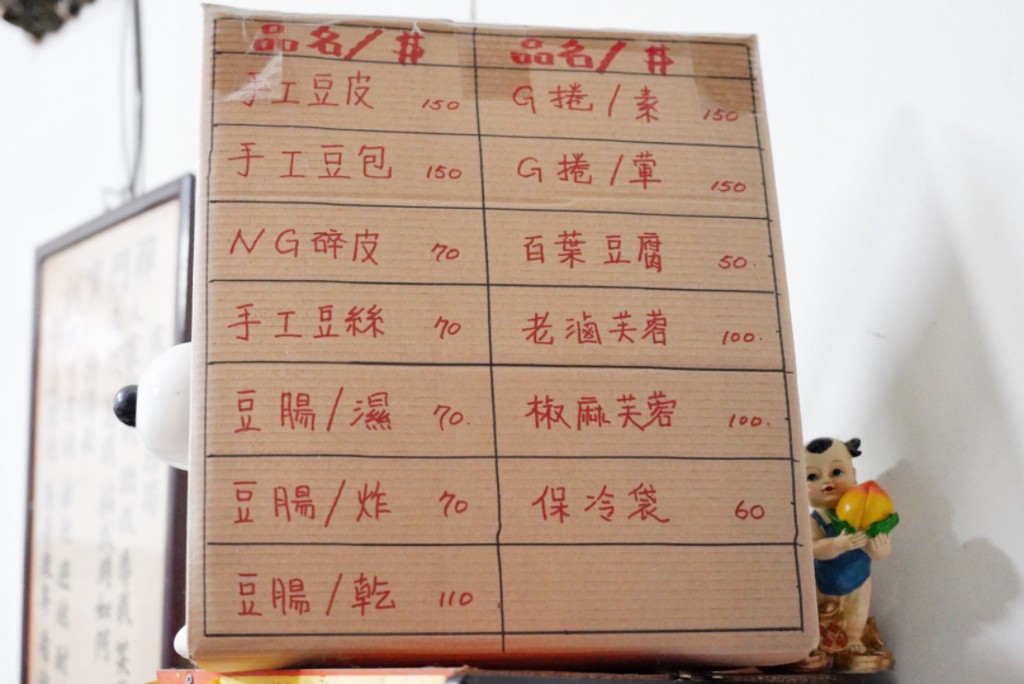 品名/#
手工豆皮 150
手工豆包 150
NG碎皮 70
手工豆絲 70
豆腸/濕 70.
豆腸/炸 70
豆腸/乾 110
品名/#
G捲/素 150
G捲/葷 150
百葉豆腐 50.
老滷芙蓉 100.
椒麻芙蓉 100.
保冷袋 60